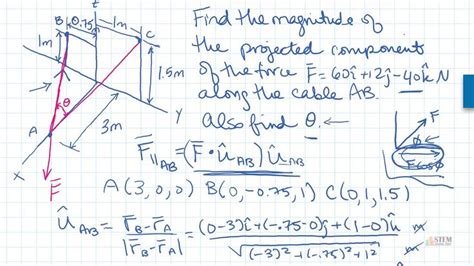 z
B 0.75 1m
1m C
1.5m
θ
A
3m
x
y
F̄
Find the magnitude of
the projected components
of the force F̄=60î+12ĵ-40k̂ N
along the cable AB.
Also find θ.
F
Fcosθ
F̄∥AB = (F̄•ûAB)ûAB
A(3,0,0) B(0,-0.75,1) C(0,1,1.5)
ûAB = r̄B-r̄A / |r̄B-r̄A| = (0-3)î+(-.75-0)ĵ+(1-0)k̂ m / √(-3)²+(-.75)²+1² m
STEM